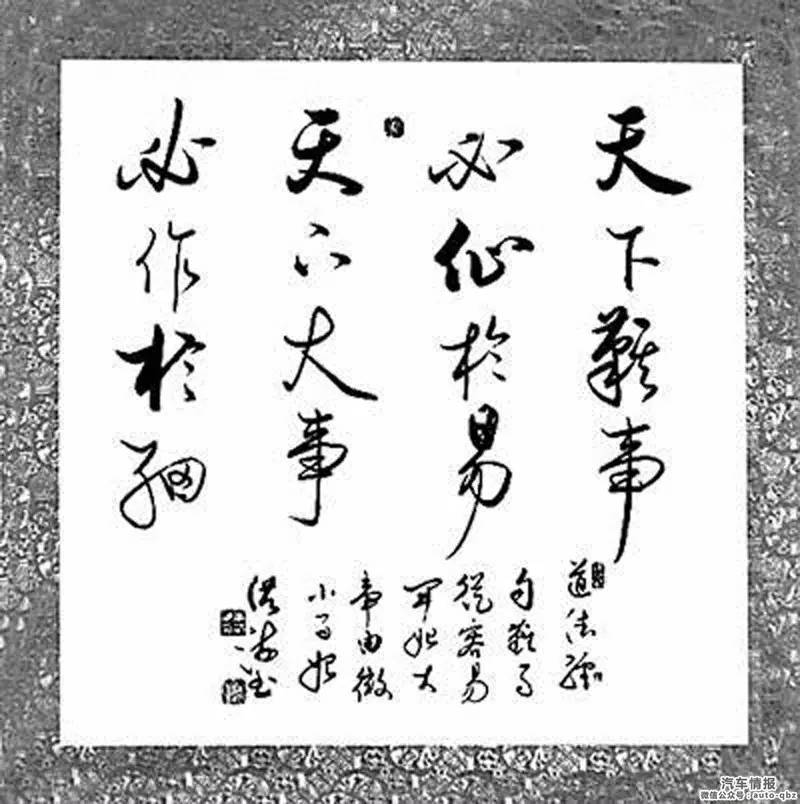 天下難事
必作於易
天下大事
必作於細
道德經
句難事
從容易
開始大
事由微
小始
汽车情报
微信公众号：auto-qbz